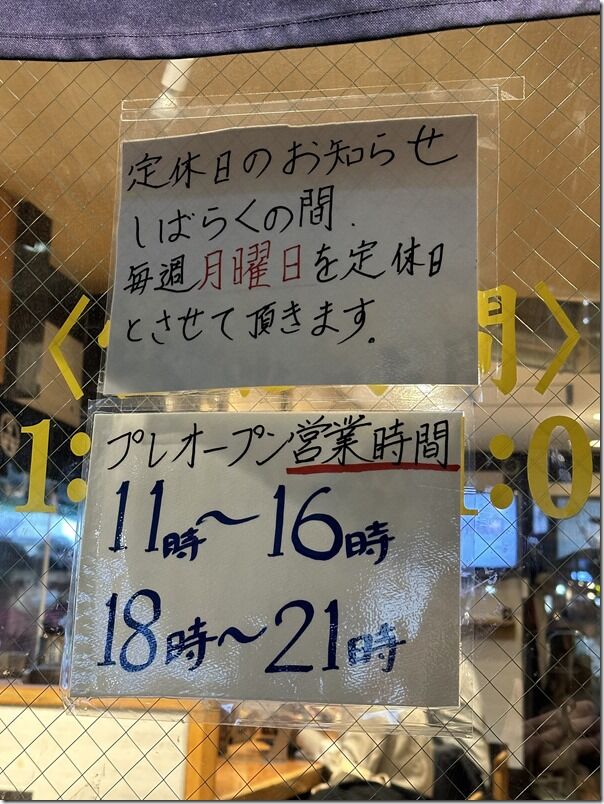 定休日のお知らせ
しばらくの間.
毎週月曜日を定休日
とさせて頂きます。
プレオープン営業時間
11時〜16時
18時〜21時